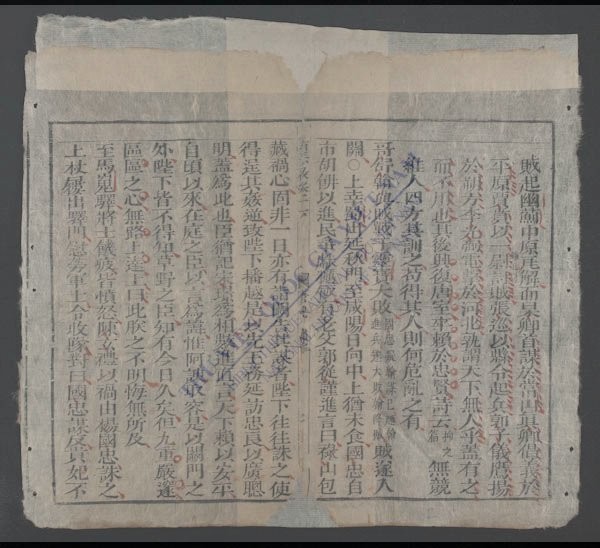 賊起幽薊中原瓦解而杲卿首謀於常山真卿倡義於
平原賈賁以一尉討賊張巡以縣令起兵郭子儀鷹揚
於朔方李光弼電擊於河北孰謂天下無人乎蓋有之
而不用也其後興復唐室卒賴於忠賢詩云抑之篇無競
維人四方其訓之苟得其人則何危亂之有
哥舒翰與賊戰于靈寶大敗賊遂入
關〇上幸蜀出延秋門至咸陽日向中上猶未食國忠自
市胡餅以進民爭獻糲飯有老父郭從謹進言曰祿山包
藏禍心固非一日亦有詣闕告其謀者陛下往往誅之使
得逞其姦逆致陛下播越是以先王務延訪忠良以廣聰
明蓋爲此也臣猶記宋璟爲相數進直言天下賴以安平
自頃以來在廷之臣以言爲諱惟阿諛取容是以闕門之
外陛下皆不得知草野之臣知有今日久矣但九重嚴邃
區區之心無路上達上曰此朕之不明悔無所及
至馬嵬驛將士饑疲皆憤怒陳玄禮以禍由楊國忠誅之
上杖屨出驛門慰勞軍士令收隊對曰國忠謀反貴妃不